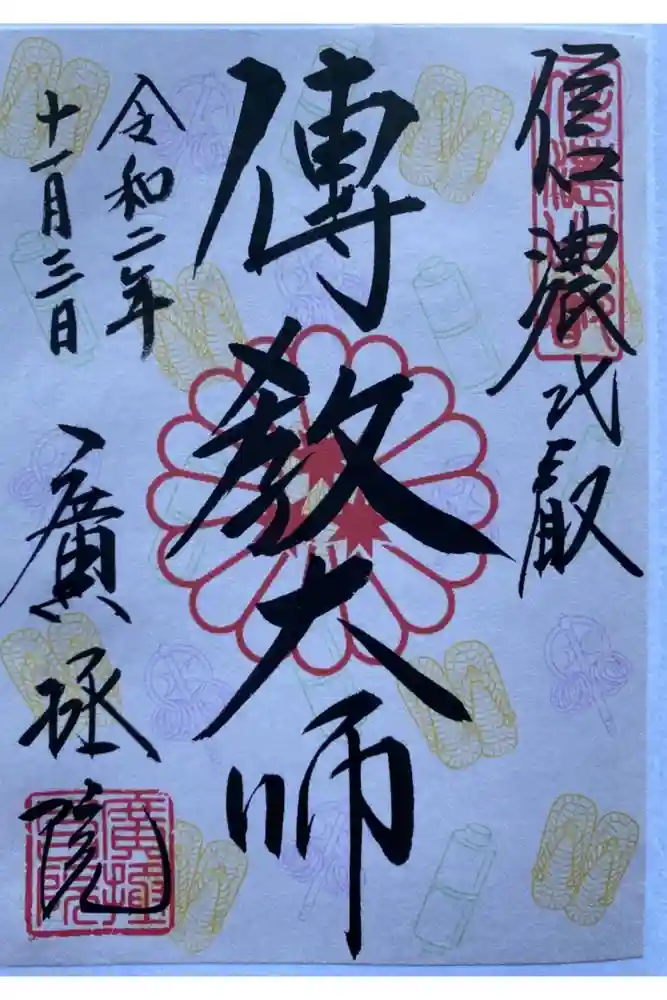 信濃比叡
傳教大師
令和二年
十一月三日
廣拯院